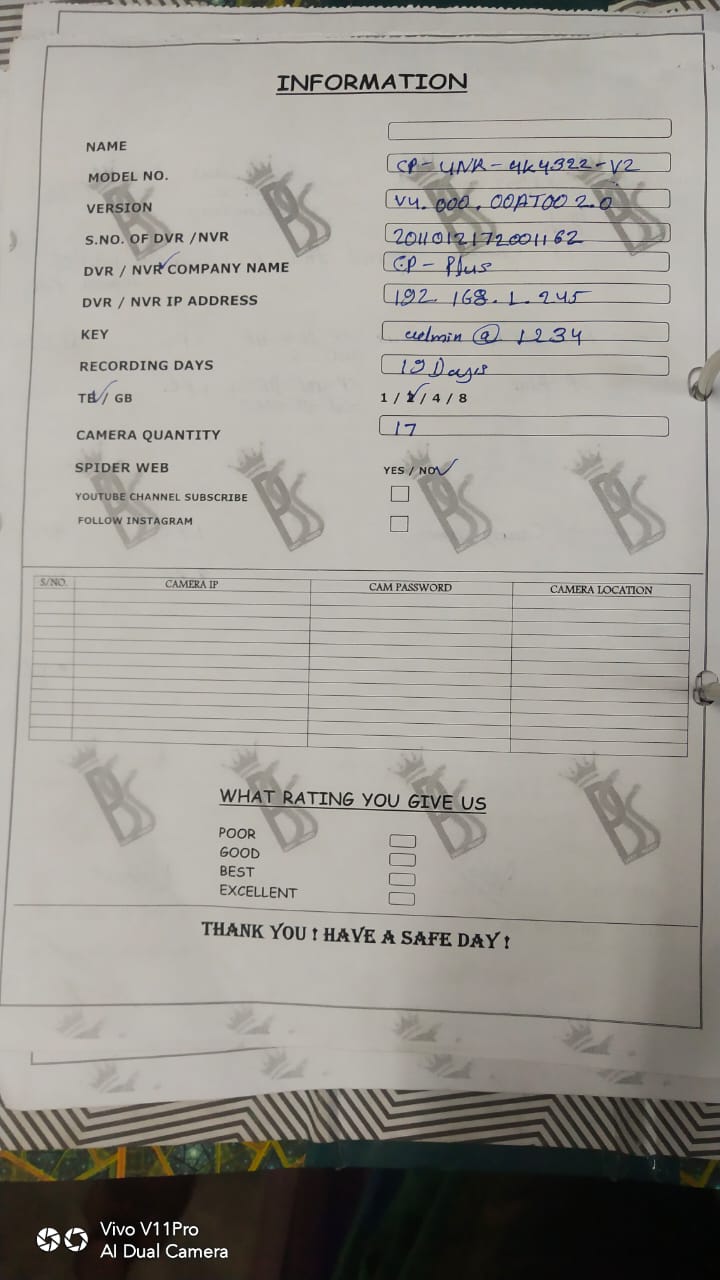 INFORMATION
NAME
MODEL NO. CP-UNR-4K4322-V2
VERSION V4.000.00AT00 2.0
S.NO. OF DVR /NVR 2011012172001162
DVR / NVR COMPANY NAME CP-Plus
DVR / NVR IP ADDRESS 192.168.1.245
KEY admin @ 1234
RECORDING DAYS 19 Days
TB / GB 1 / 2 / 4 / 8
CAMERA QUANTITY 17
SPIDER WEB YES / NO
YOUTUBE CHANNEL SUBSCRIBE
FOLLOW INSTAGRAM
S/NO. CAMERA IP CAM PASSWORD CAMERA LOCATION
WHAT RATING YOU GIVE US
POOR
GOOD
BEST
EXCELLENT
THANK YOU ! HAVE A SAFE DAY !
Vivo V11Pro
AI Dual Camera